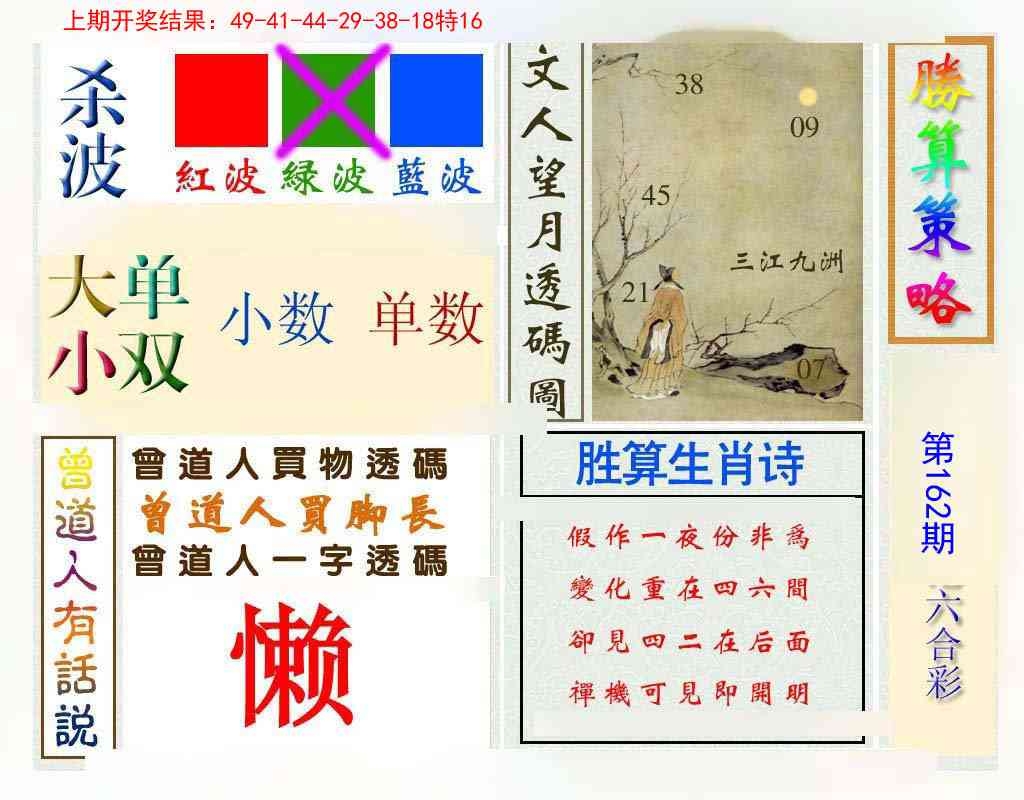 上期开奖结果：49-41-44-29-38-18特16
杀波
紅波
緑波
藍波
大小
单双
小数
单数
文人望月透碼圖
38
09
45
三江九洲
21
07
勝算策略
曾道人有話説
曾道人買物透碼
曾道人買脚長
曾道人一字透碼
懒
胜算生肖诗
假作一夜份非為
變化重在四六間
卻見四二在后面
禪機可見即開明
第162期
六合彩